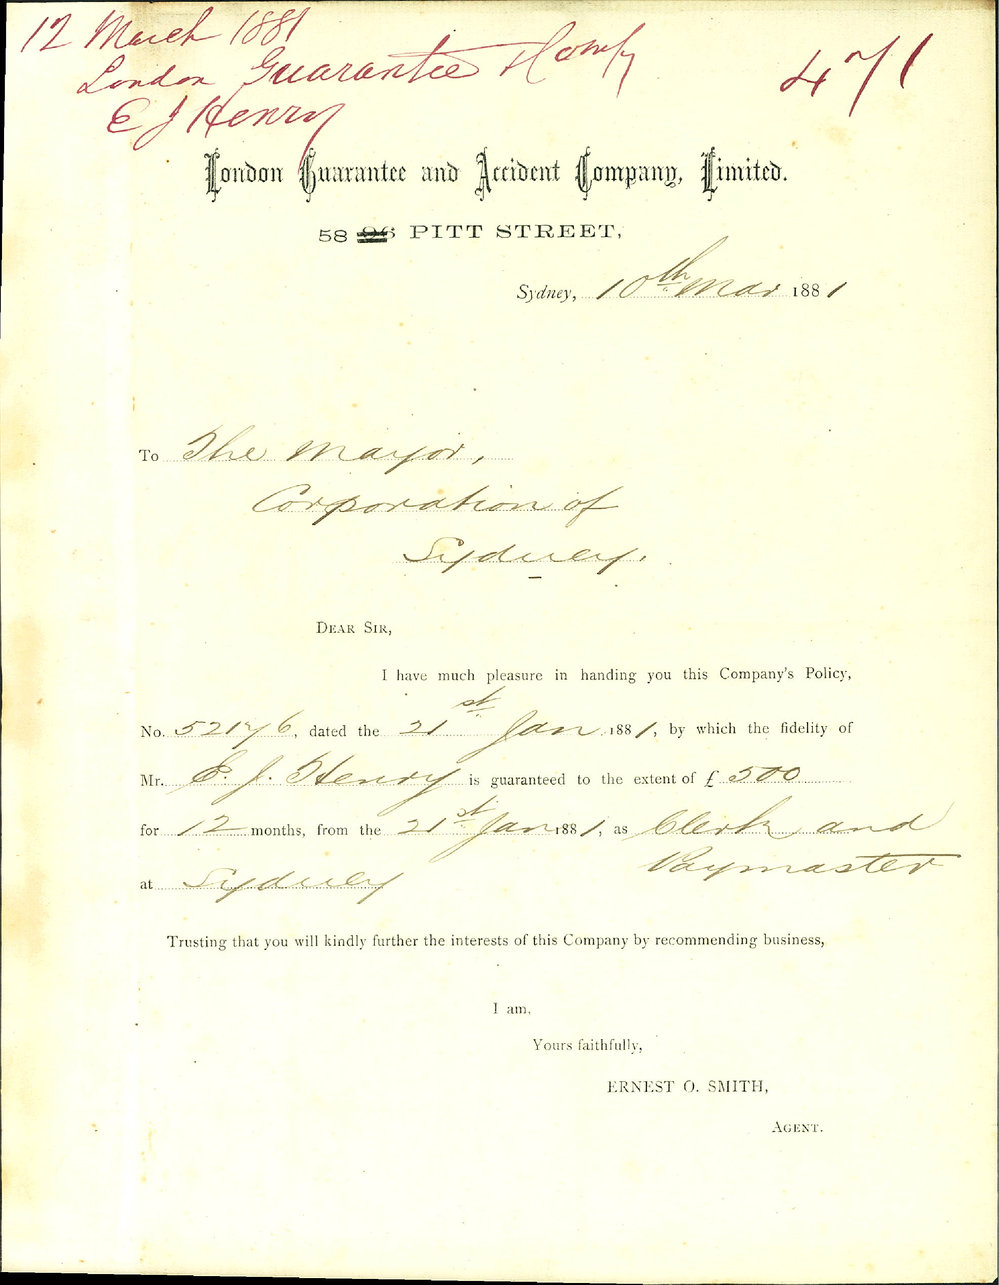 12 March 1881
London Guarantee & Compy
E J Henry
471
London Guarantee and Accident Company, Limited.
58 96 PITT STREET,
Sydney, 10th Mar 1881
To The Mayor,
Corporation of
Sydney.
DEAR SIR,
I have much pleasure in handing you this Company's Policy,
No. 52176, dated the 21st Jan 1881, by which the fidelity of
Mr. E. J. Henry is guaranteed to the extent of £ 500
for 12 months, from the 21st Jan 1881, as Clerk and
Paymaster
at Sydney
Trusting that you will kindly further the interests of this Company by recommending business,
I am,
Yours faithfully,
ERNEST O. SMITH,
AGENT.